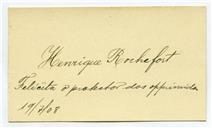 Henrique Rochefort
Felicita o protector dos opprimidos
19/7/08